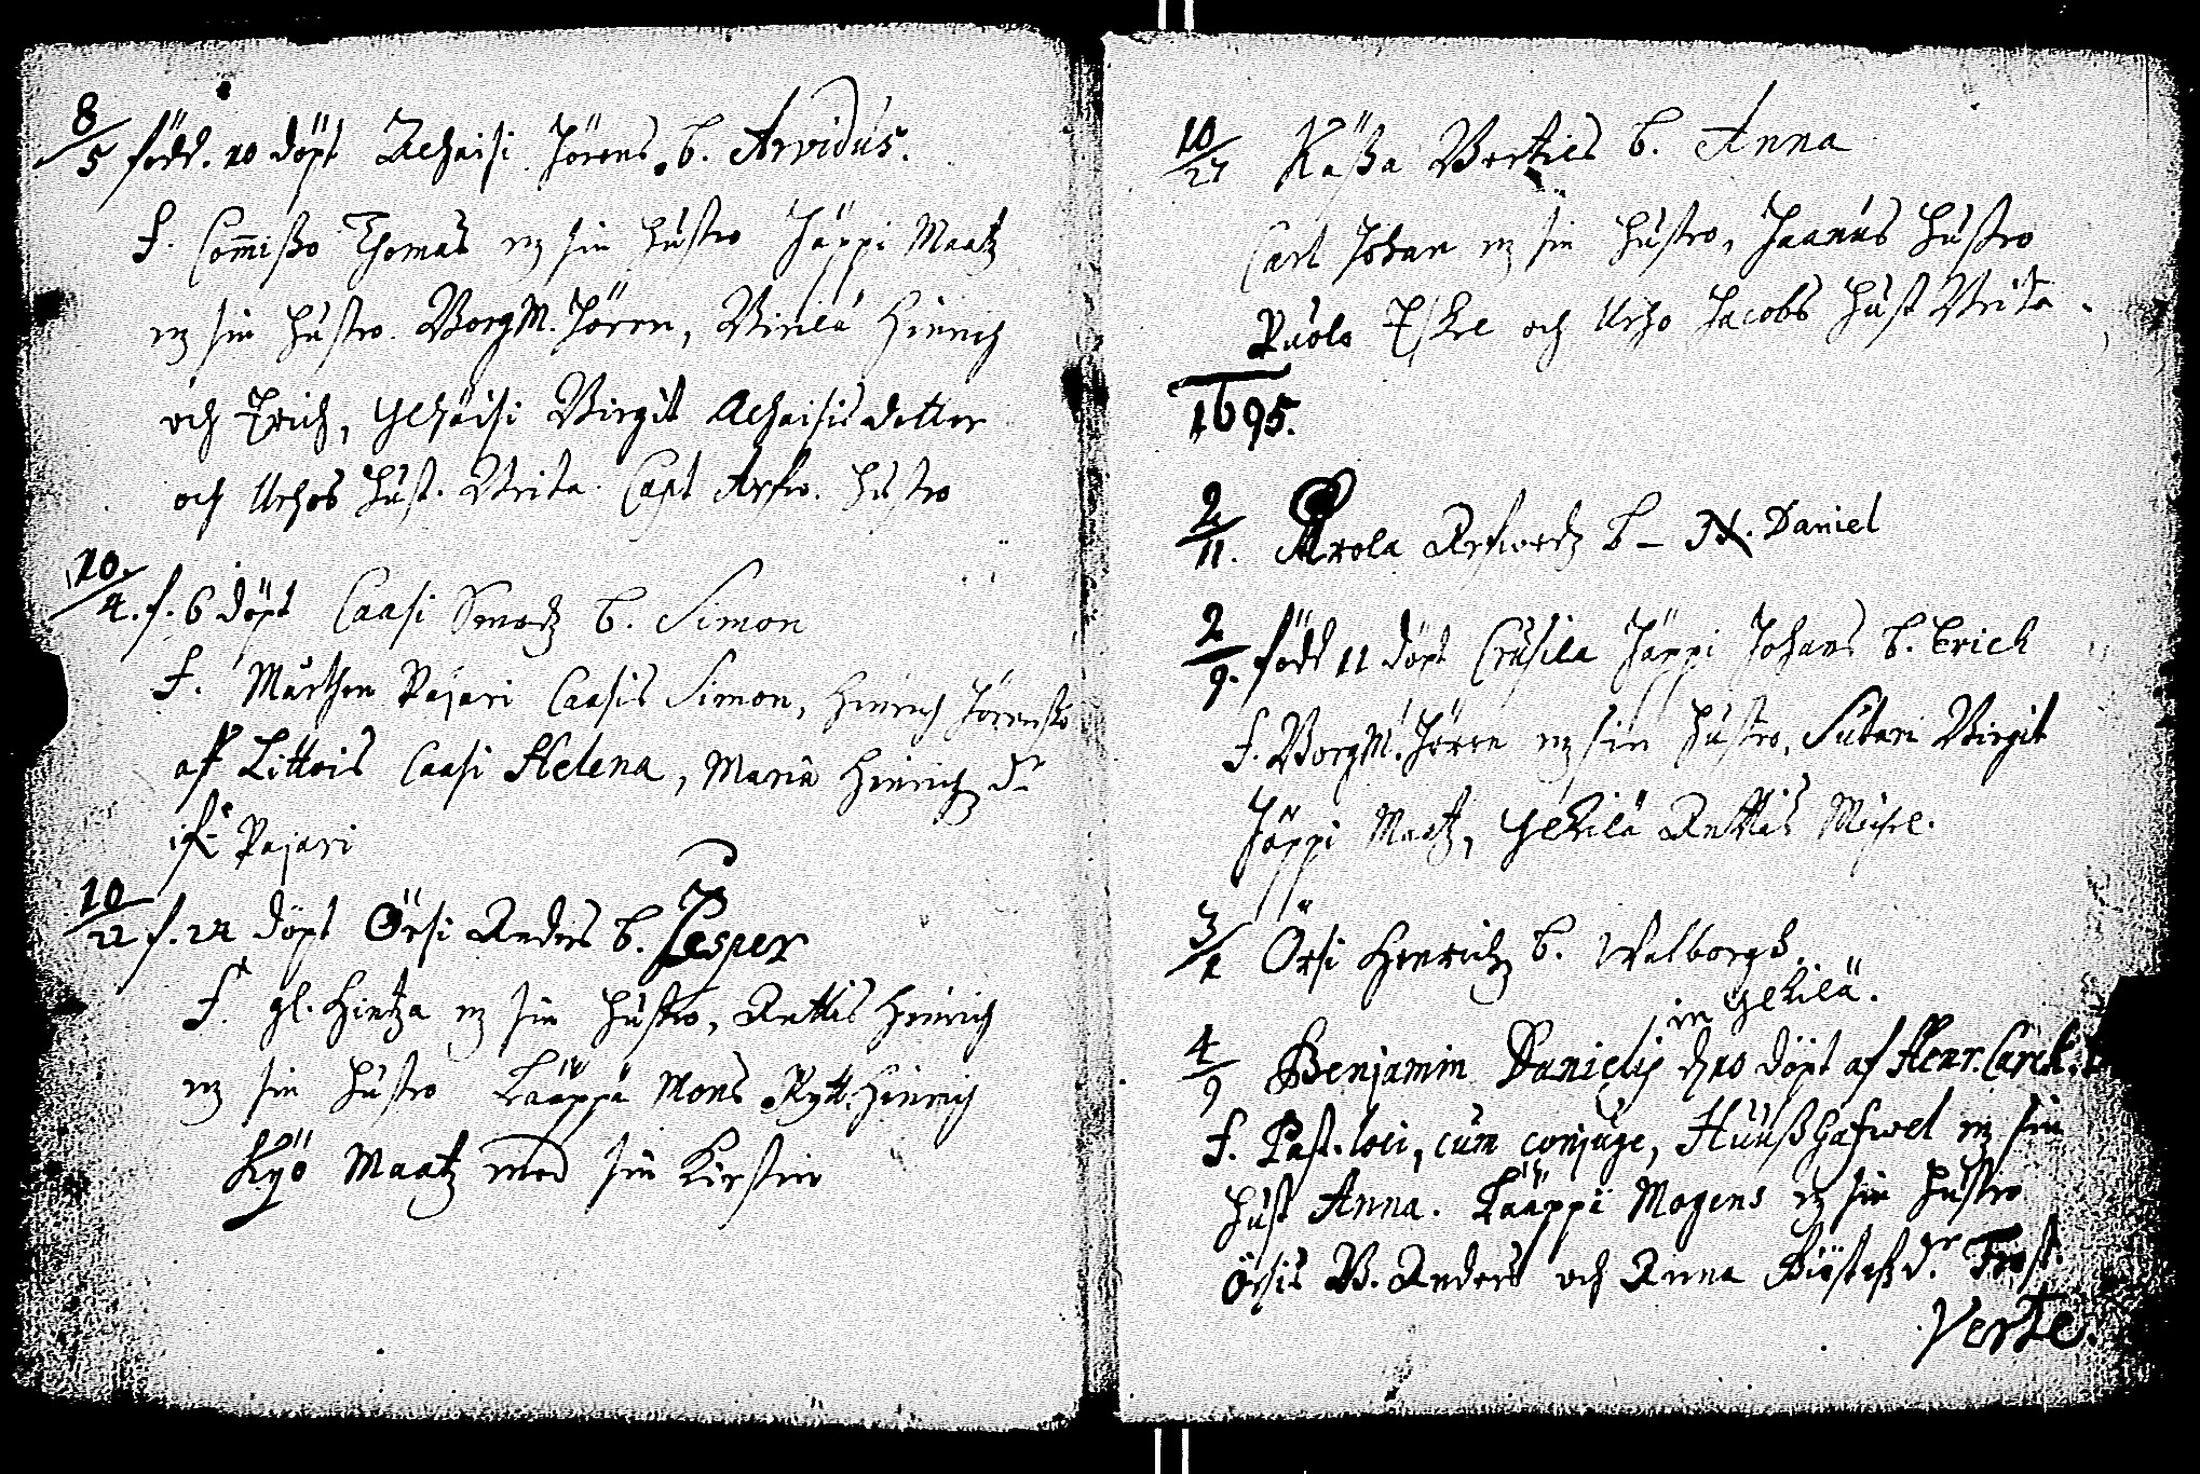 8/5 född. 10 döpt Achaisi Jörens. b. Arvidus.
f. Com̄isso Thomas m sin hustro Jäppi Maatz
m sin hustro. BorgM. Jören, Hinrich
och Erich, Ychäisi Birgit Achaisis dotter
och Urhos hust. Brita. Capt hustro
10/4. f. 6 döpt Caasi b. Simon
f. Mårthen Pajari Caasis Simon, Hinrich
af Littois Caasi Helena, Maria Hinrichz dr
Pajari
10/22 f. 24 döpt Örsi Anders b. Jesper
f. gl. Hintza m sin hustro, Anttis Hinrich
m sin hustro Lääppä Mons Rytt. Hinrich
Kyö Maatz med sin Kirstin
10/27 Kässa Bertils b. Anna
Carl Johan m sin hustro, Jaanus hustro
Eskel och Urho Jacobs hust Brita.
1695.
2/11. Arola b - N. Daniel
2/9. född 11 döpt Crusila Jäppi Johans b. Erich
f. BorgM. Jören m sin hustro, Sutari Birgit
Jäppi Maatz, Yckilä Anttis Michel.
3/1 Örsi Henrichz b. Walborgh.
in Yckilä.
4/9 Benjamin Danielis d 10 döpt af Henr. Carck.
f. Past. loci, cum conjuge, m sin
hust Anna. Lääppi Mogens m sin hustro
Örsis B. Anders och Anna dr. Frost.
Verte.